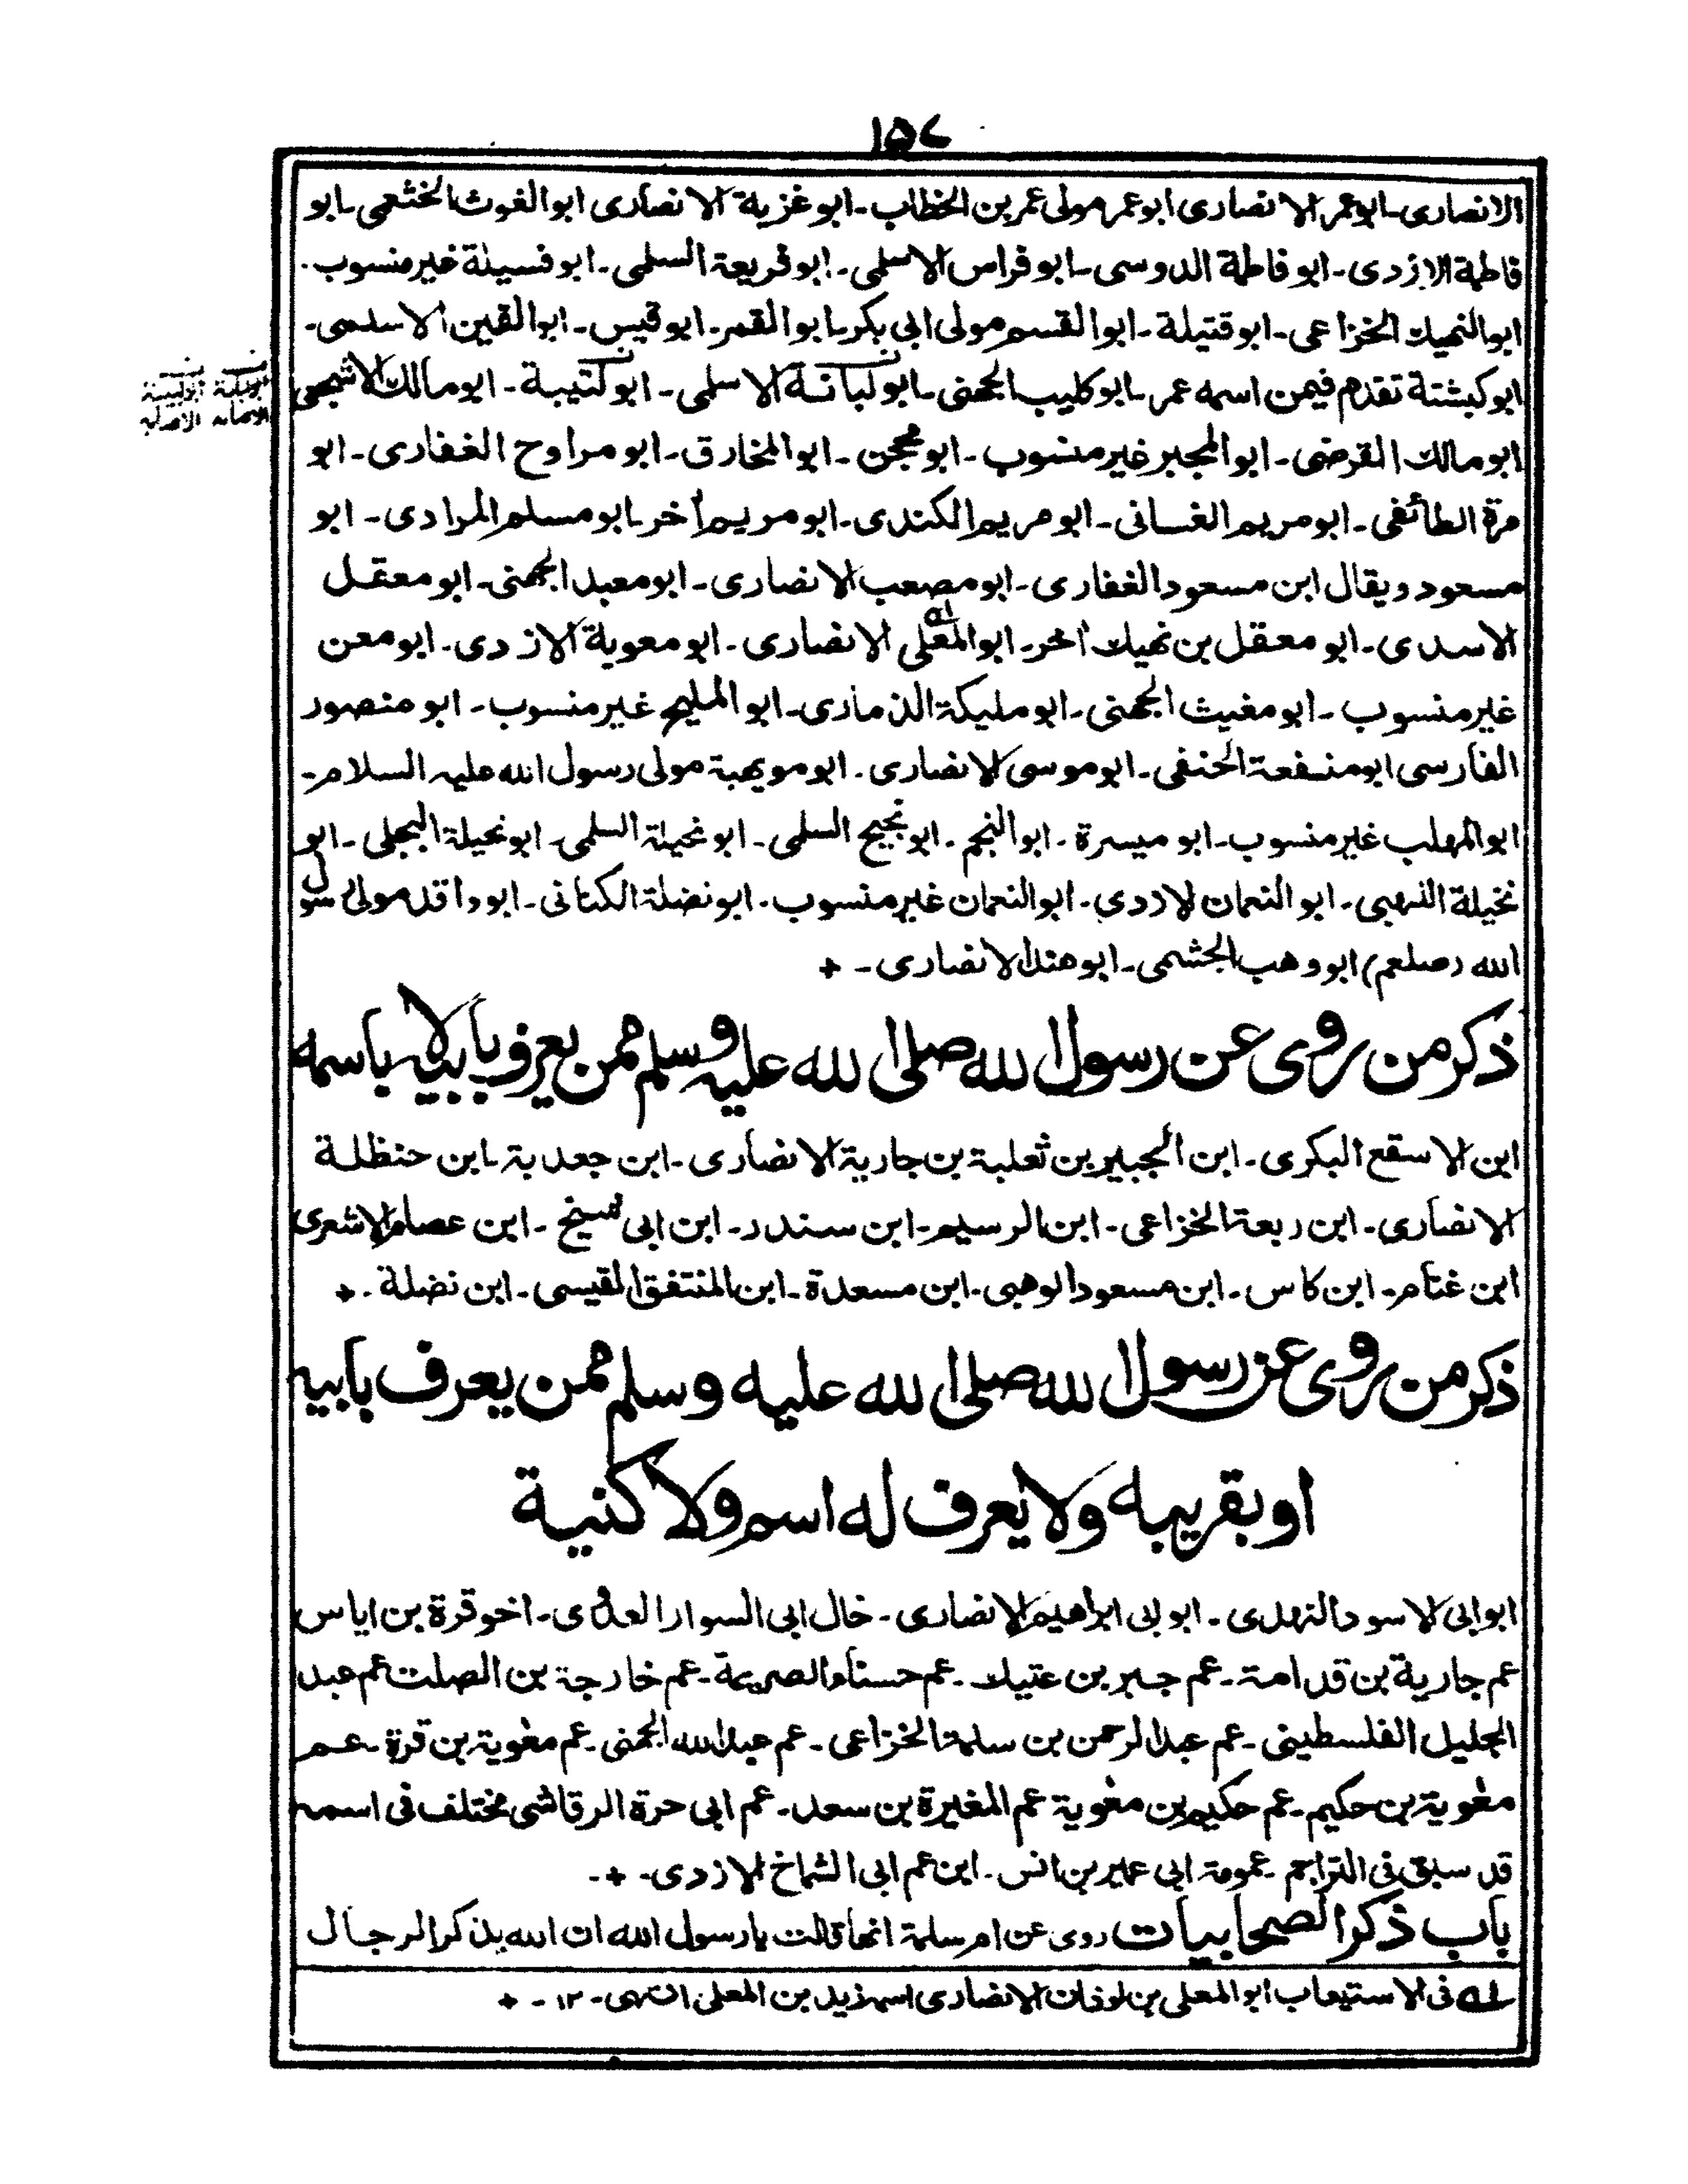 ١٥٧
الانصارى ـ ابوعمر الانصارى ابوعمر مولى عمر بن الخطاب ـ ابوغزية الانصارى ابوالغوث الخثعمى ـ ابو
فاطمة الازدى ـ ابوفاطمة الدوسى ـ ابوفراس الاسلمى ـ ابوقريعة السلمى ـ ابوفسيلة غيرمنسوب ـ
ابوالنهيك الخزاعى ـ ابوقتيلة ـ ابوالقسم مولى ابى بكر ـ ابوالقمر ـ ابوقيس ـ ابوالقين الاسلمى ـ
ابوكبشتة تقدم فيمن اسمه عمر ـ ابوكليب الجهنى ـ ابولبانة الاسلمى ـ ابوكتيبة ـ ابومالك الاشجعى
ابومالك القرضى ـ ابوالمجبر غيرمنسوب ـ ابومحجن ـ ابوالمخارق ـ ابومراوح الغفارى ـ ابو
مرة الطائفى ـ ابومريم الغسانى ـ ابومريم الكندى ـ ابومريم اخر ـ ابومسلم المرادى ـ ابو
مسعود ويقال ابن مسعود الغفارى ـ ابومصعب الانصارى ـ ابومعبد الجهنى ـ ابومعقل
الاسدى ـ ابومعقل بن نهيك اخر ـ ابوالمعلى الانصارى ـ ابومعوية الازدى ـ ابومعن
غيرمنسوب ـ ابومغيث الجهنى ـ ابومليكة الذمارى ـ ابوالمليح غيرمنسوب ـ ابومنصور
الفارسى ابومنفعة الحنفى ـ ابوموسى الانصارى ـ ابومويهبة مولى رسول الله عليه السلام ـ
ابوالمهلب غيرمنسوب ـ ابوميسرة ـ ابوالنجم ـ ابونجيح السلمى ـ ابونحيلة السلمى ـ ابونحيلة البجلى ـ ابو
نخيلة اللهبى ـ ابوالنعمان الازدى ـ ابوالنعمان غيرمنسوب ـ ابونضلة الكنانى ـ ابوواقد مولى رسول
الله (صلعم) ابووهب الجشمى ـ ابوهند الانصارى ـ +
ذكر من روى عن رسول الله صلى الله عليه وسلم ممن يعرف بابيه لا باسمه
ابن الاسقع البكرى ـ ابن الجبير بن ثعلبة بن جارية الانصارى ـ ابن جعدبة ـ ابن حنظلة
الانصارى ـ ابن ربعة الخزاعى ـ ابن الرسيم ـ ابن سندر ـ ابن ابى شيخ ـ ابن عصام الاشعرى
ابن غنام ـ ابن كاس ـ ابن مسعود الوهبى ـ ابن مسعدة ـ ابن المنتفق القيسى ـ ابن نضلة ـ +
ذكر من روى عن رسول الله صلى الله عليه وسلم ممن يعرف بابيه
او بقريبه ولا يعرف له اسم ولا كنية
ابوابى الاسود النهدى ـ ابوابى ابراهيم الانصارى ـ خال ابى السوار العدوى ـ اخوقرة بن اياس
عم جارية بن قدامة ـ عم جبر بن عتيك ـ عم حسناء الصريمة ـ عم خارجة بن الصلت عم عبد
الجليل الفلسطينى ـ عم عبد الرحمن بن سلمة الخزاعى ـ عم عبد الله الجهنى ـ عم معوية بن قرة ـ عم
معوية بن حكيم ـ عم حكيم بن معوية عم المغيرة بن سعد ـ عم ابى حرة الرقاشى مختلف فى اسمه
قد سبق فى التراجم ـ عمومة ابى عمير بن انس ـ ابن عم ابى الشماخ الازدى ـ + ـ
باب ذكر الصحابيات روى عن ام سلمة انها قالت يا رسول الله ان الله يذكر الرجال
له فى الاستيعاب ابوالمعلى بن لوذان الانصارى اسمه زيد بن المعلى انتهى ـ ١٢ ـ +